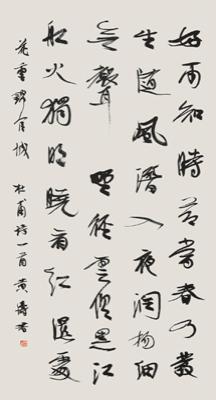 好雨知時節當春乃發
生隨風潛入夜潤物細
無聲野徑雲俱黑江
船火獨明曉看紅濕處
花重錦官城 杜甫詩一首 黄濤書